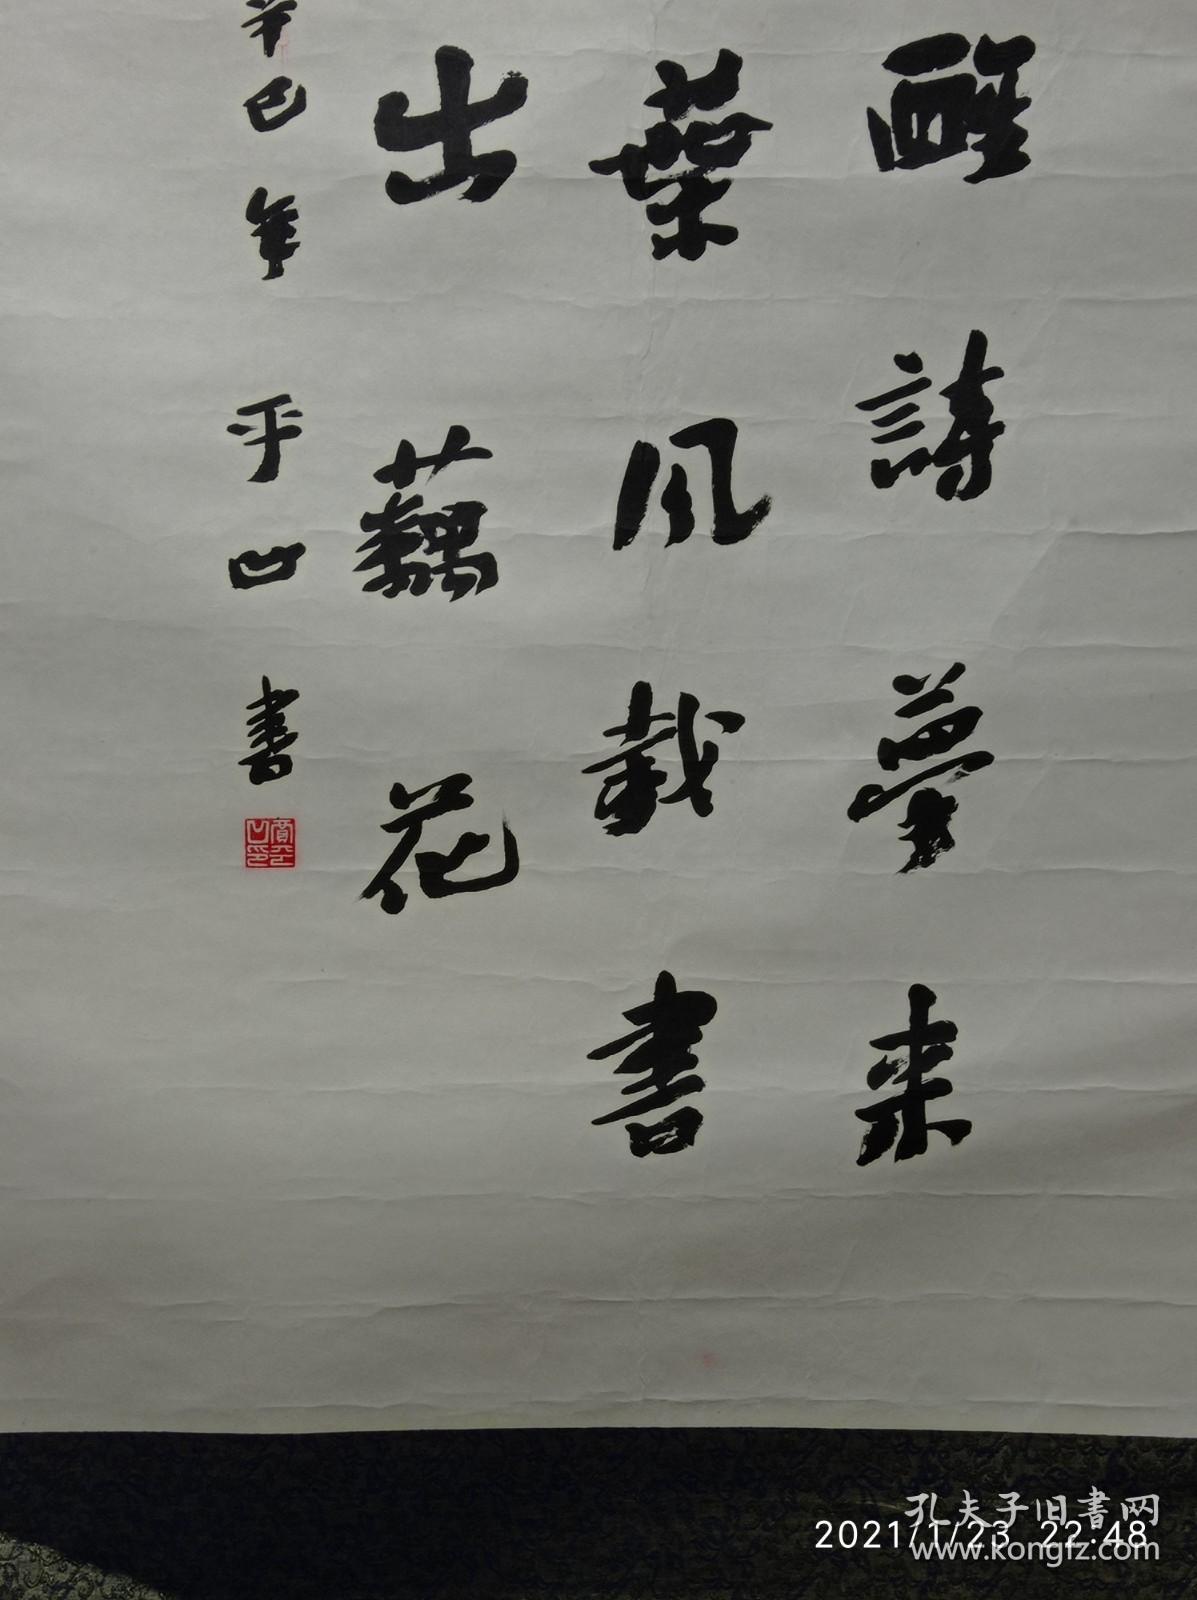 醒詩夢来
葉風載書
出藕花
辛巳年平凹書
賈平凹印
孔夫子旧書网
2021/1/23 22:48
www.kongfz.com